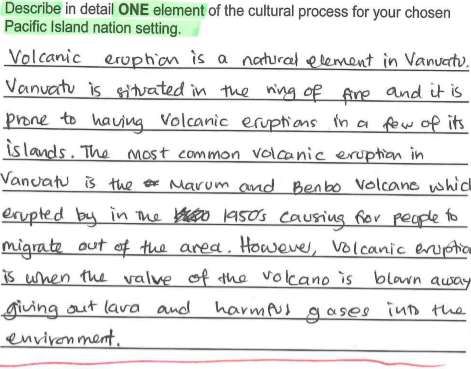 Describe in detail ONE element of the cultural process for your chosen
Pacific Island nation setting.
Volcanic eruption is a natural element in Vanuatu.
Vanuatu is situated in the ring of fire and it is
prone to having Volcanic eruptions in a few of its
islands. The most common volcanic eruption in
Vanuatu is the Marum and Benbo Volcano which
erupted by in the 1950's causing for people to
migrate out of the area. However, Volcanic eruption
is when the valve of the volcano is blown away
giving out lava and harmful gases into the
environment.